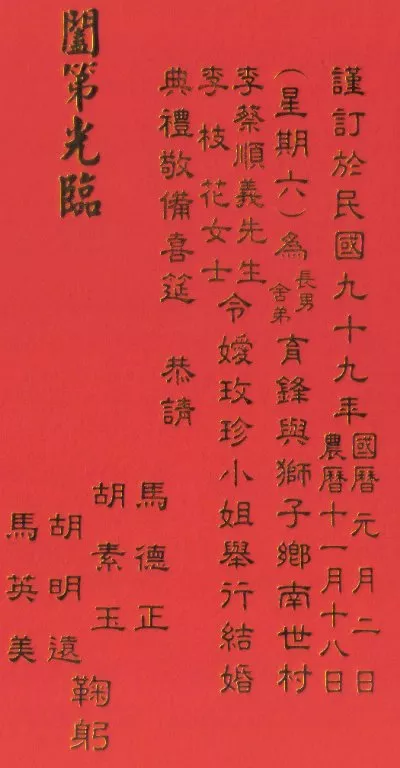 謹訂於民國九十九年
國曆元月二日
農曆十一月十八日
（星期六）為
長男
舍弟
育鋒與獅子鄉南世村
李蔡順義先生
李枝花女士
令嬡玫珍小姐舉行結婚
典禮敬備喜筵 恭請
闔第光臨
馬德正
胡素玉
胡明遠
馬英美
鞠躬